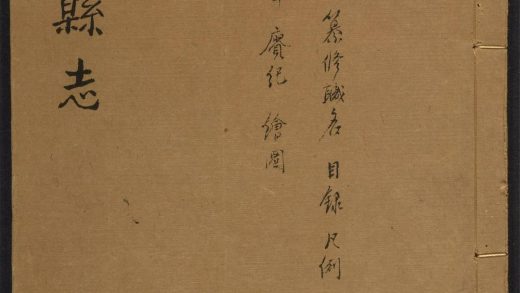 纂修職名 目錄 凡例
賡紀 繪圖
縣志